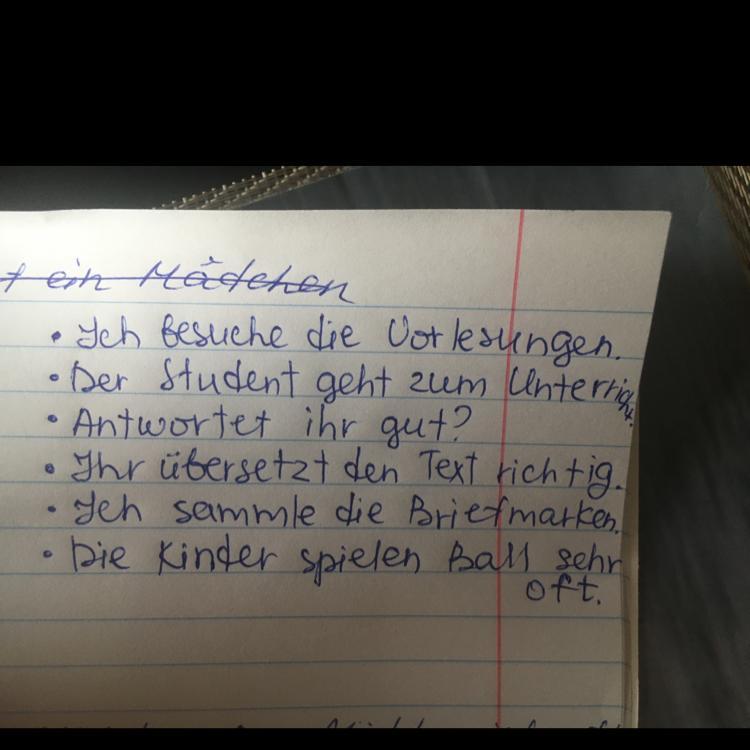 ein Mädchen
• Ich besuche die Vorlesungen.
• Der Student geht zum Unterricht.
• Antwortet ihr gut?
• Ihr übersetzt den Text richtig.
• Ich sammle die Briefmarken.
• Die Kinder spielen Ball sehr
oft.